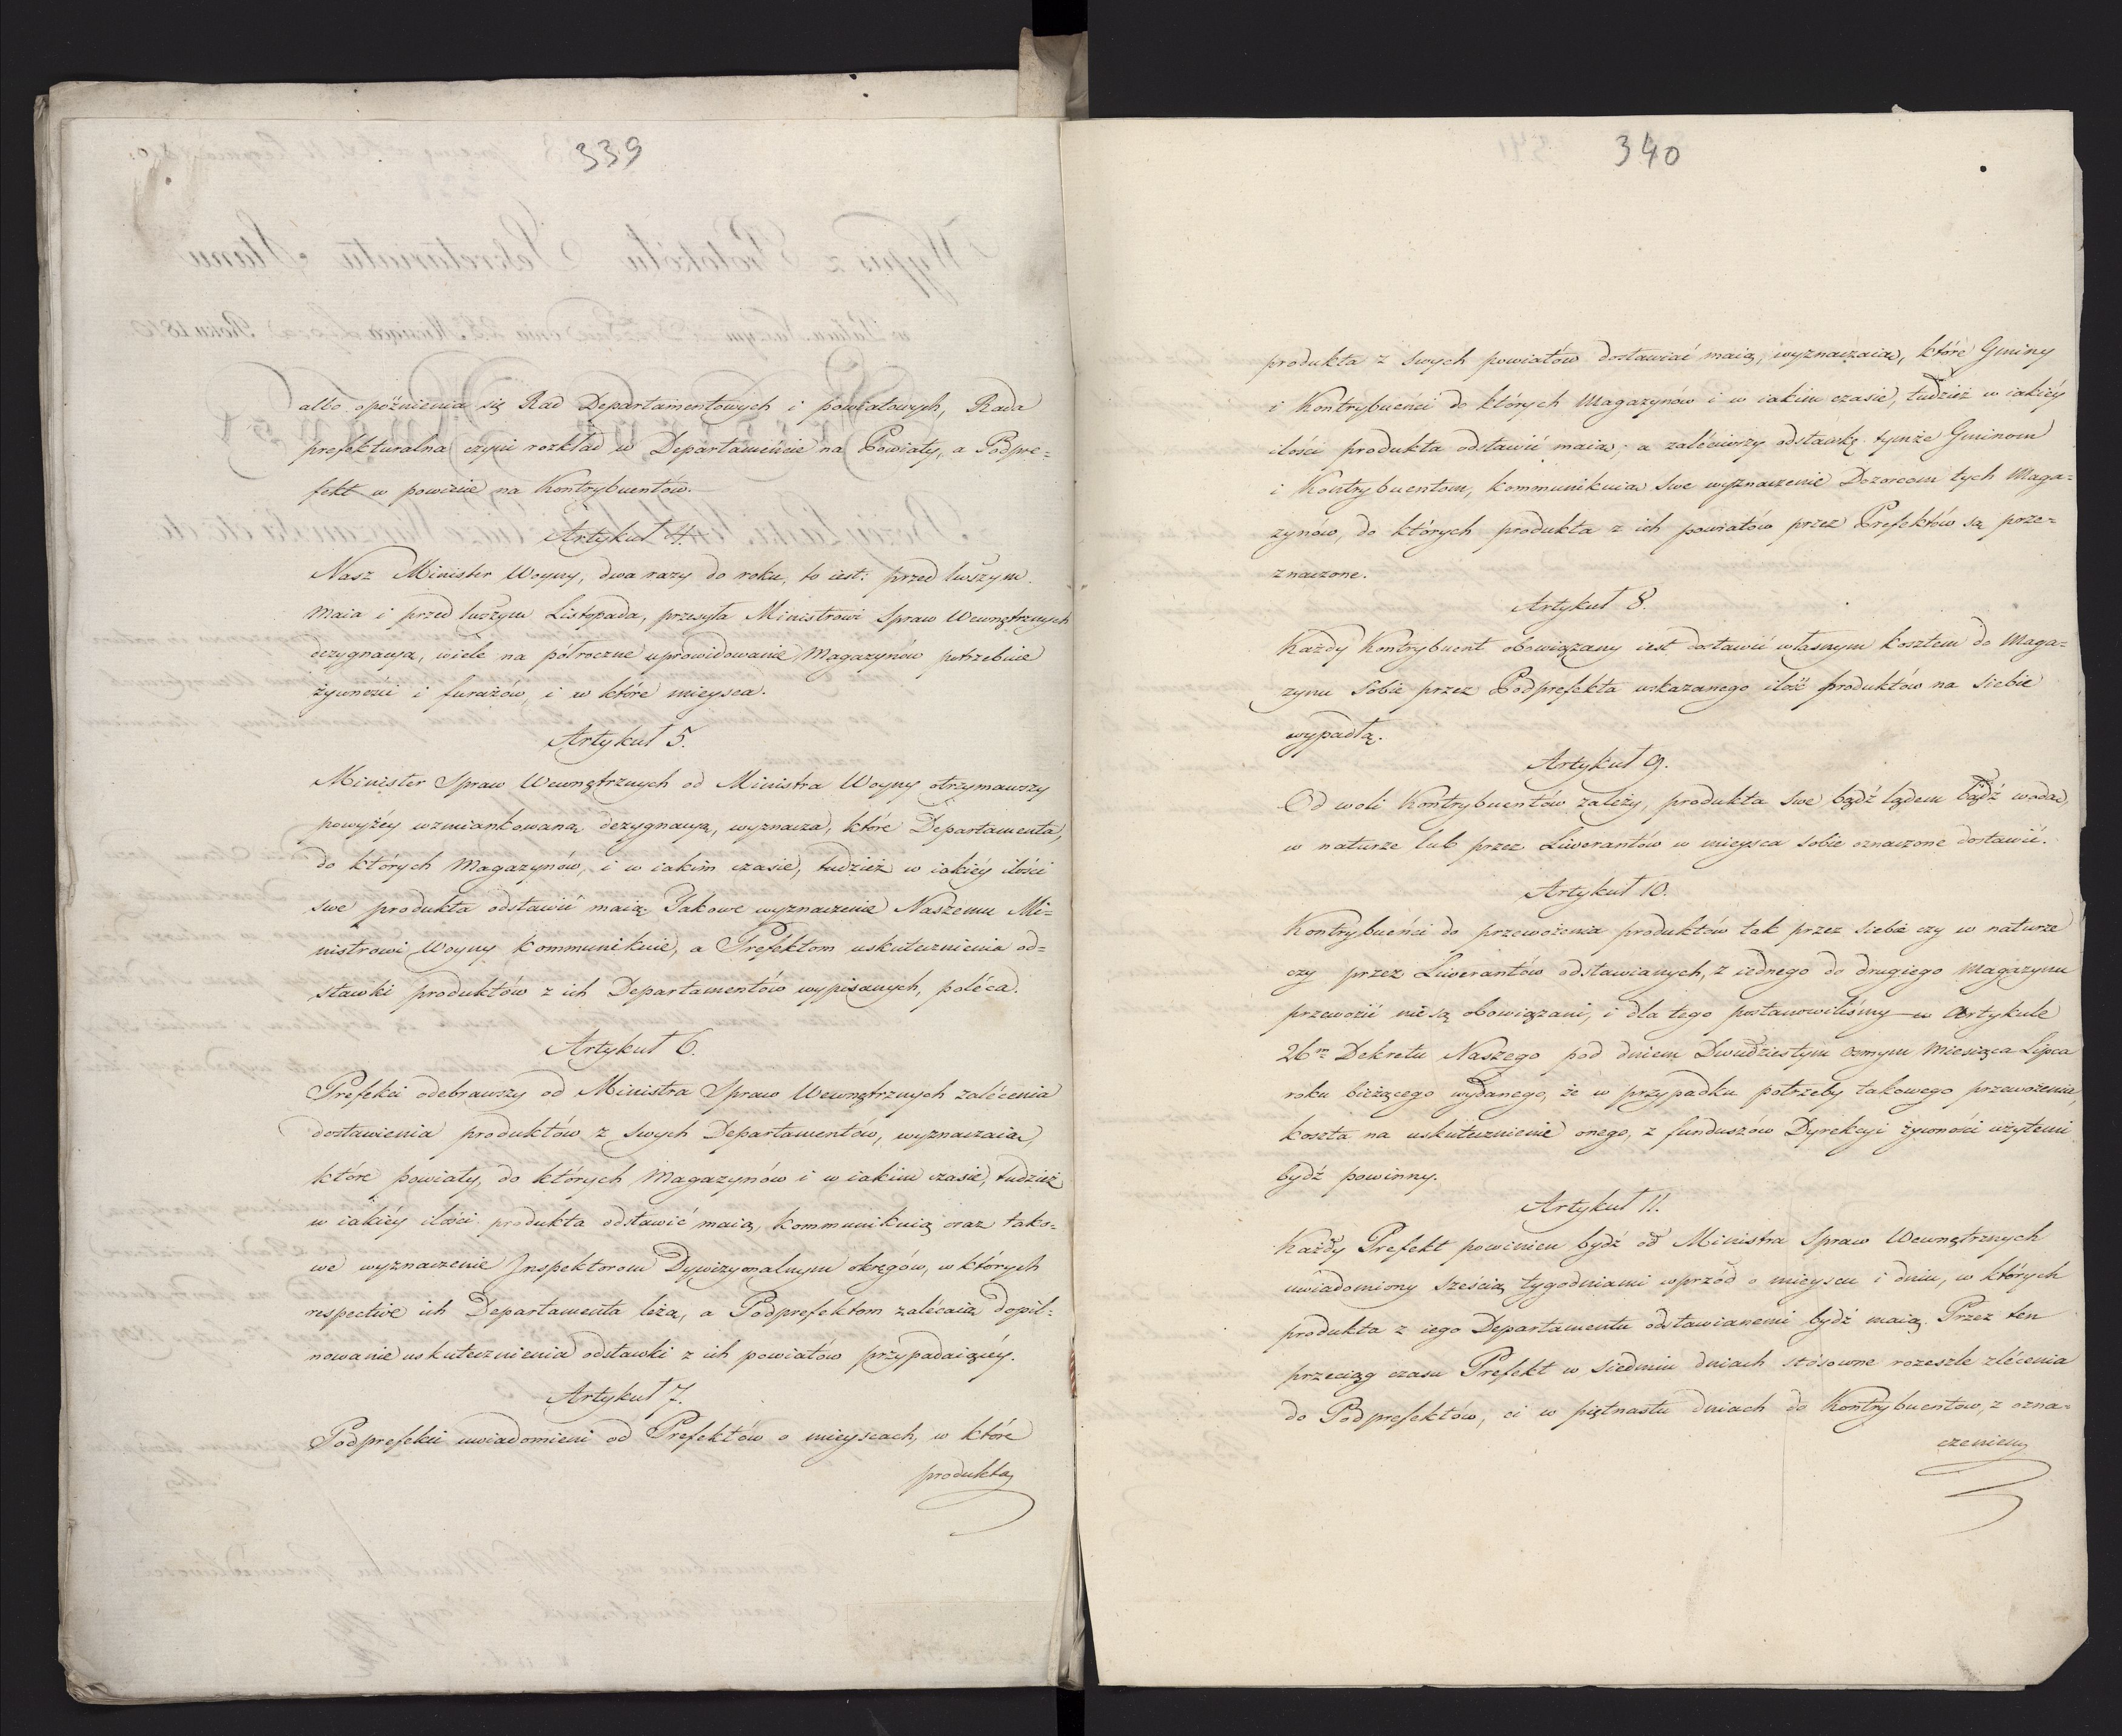 339
albo opóźnienia się Rad Departamentowych i powiatowych, Rada
prefekturalna czyni rozkład w Departamencie na Powiaty, a Podpre=
fekt w powiecie na Kontrybuentów.
Artykuł 4.
Nasz Minister Woyny, dwa razy do roku, to iest: przed 1wszym
Maia i przed 1wszym Listopada, przesyła Ministrowi Spraw Wewnętrznych
dezygnacyą, wiele na półroczne uprowidowanie Magazynów potrzebuie
żywności i furażów, i w które mieysca.
Artykuł 5.
Minister Spraw Wewnętrznych od Ministra Woyny otrzymawszy
powyżéy wzmiankowaną dezygnacyą, wyznacza, które Departamenta,
do których Magazynów, i w iakim czasie, tudzież w iakiéy ilości
swe produkta odstawić maią. Takowe wyznaczenie Naszemu Mi=
nistrowi Woyny kommunikuie, a Prefektom uskutecznienia od=
stawki produktów z ich Departamentów wypisanych, poléca.
Artykuł 6.
Prefekci odebrawszy od Ministra Spraw Wewnętrznych zalécenia
dostawienia produktów z swych Departamentów, wyznaczaią,
które powiaty, do których Magazynów i w iakim czasie, tudzież
w iakiéy ilości produkta odstawić maią, kommunikuią oraz tako=
we wyznaczenie Inspektorom Dywizyonalnym okręgów, w których
respective ich Departamenta leżą, a Podprefektom zalécaią dopil=
nowanie uskutecznienia odstawki z ich powiatów przypadaiącéy.
Artykuł 7.
Podprefekci uwiadomieni od Prefektów o mieyscach, w które
produkta
340
produkta z swych powiatów dostawiać maią, wyznaczaią, które Gminy
i Kontrybuenci do których Magazynów i w iakim czasie, tudzież w iakiéy
ilości produkta odstawić maią; a zaléciwszy odstawkę tymże Gminom
i Kontrybuentom, kommunikuią swe wyznaczenie Dozorcom tych Maga=
zynów, do których produkta z ich powiatów przez Prefektów są prze=
znaczone.
Artykuł 8.
Każdy Kontrybuent obowiązany iest dostawić własnym kosztem do Maga=
zynu sobie przez Podprefekta wskazanego ilość produktów na siebie
wypadłą.
Artykuł 9.
Od woli Kontrybuentów zależy, produkta swe bądź lądem bądź wodą,
w naturze lub przez Liwerantów w mieysca sobie oznaczone dostawić.
Artykuł 10.
Kontrybuenci do przewożenia produktów tak przez siebie czy w naturze
czy przez Liwerantów odstawianych, z iednego do drugiego Magazynu
przewozić nie są obowiązani, i dla tego postanowiliśmy w Artykule
26m Dekretu Naszego pod dniem Dwudziestym osmym Miesiąca Lipca
roku bieżącego wydanego, że w przypadku potrzeby takowego przewożenia,
koszta na uskutecznienie onego, z funduszów Dyrekcyi żywności użytemi
bydź powinny.
Artykuł 11.
Każdy Prefekt powinien bydź od Ministra Spraw Wewnętrznych
uwiadomiony sześcią tygodniami wprzód o mieyscu i dniu, w których
produkta z iego Departamentu odstawianemi bydź maią. Przez ten
przeciąg czasu Prefekt w siedmiu dniach stósowne rozeszle zlécenia
do Podprefektów, ci w piętnastu dniach do Kontrybuentow, z ozna=
czeniem